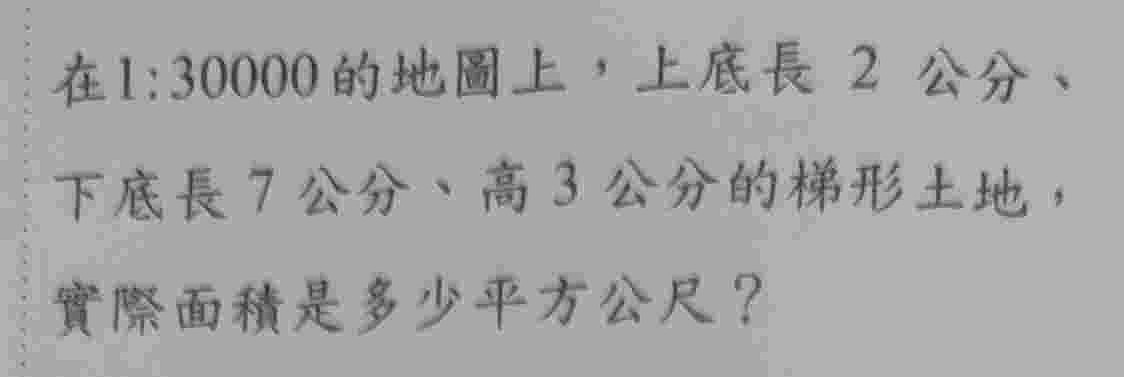 在1:30000的地圖上，上底長 2 公分、
下底長 7 公分、高 3 公分的梯形土地，
實際面積是多少平方公尺？